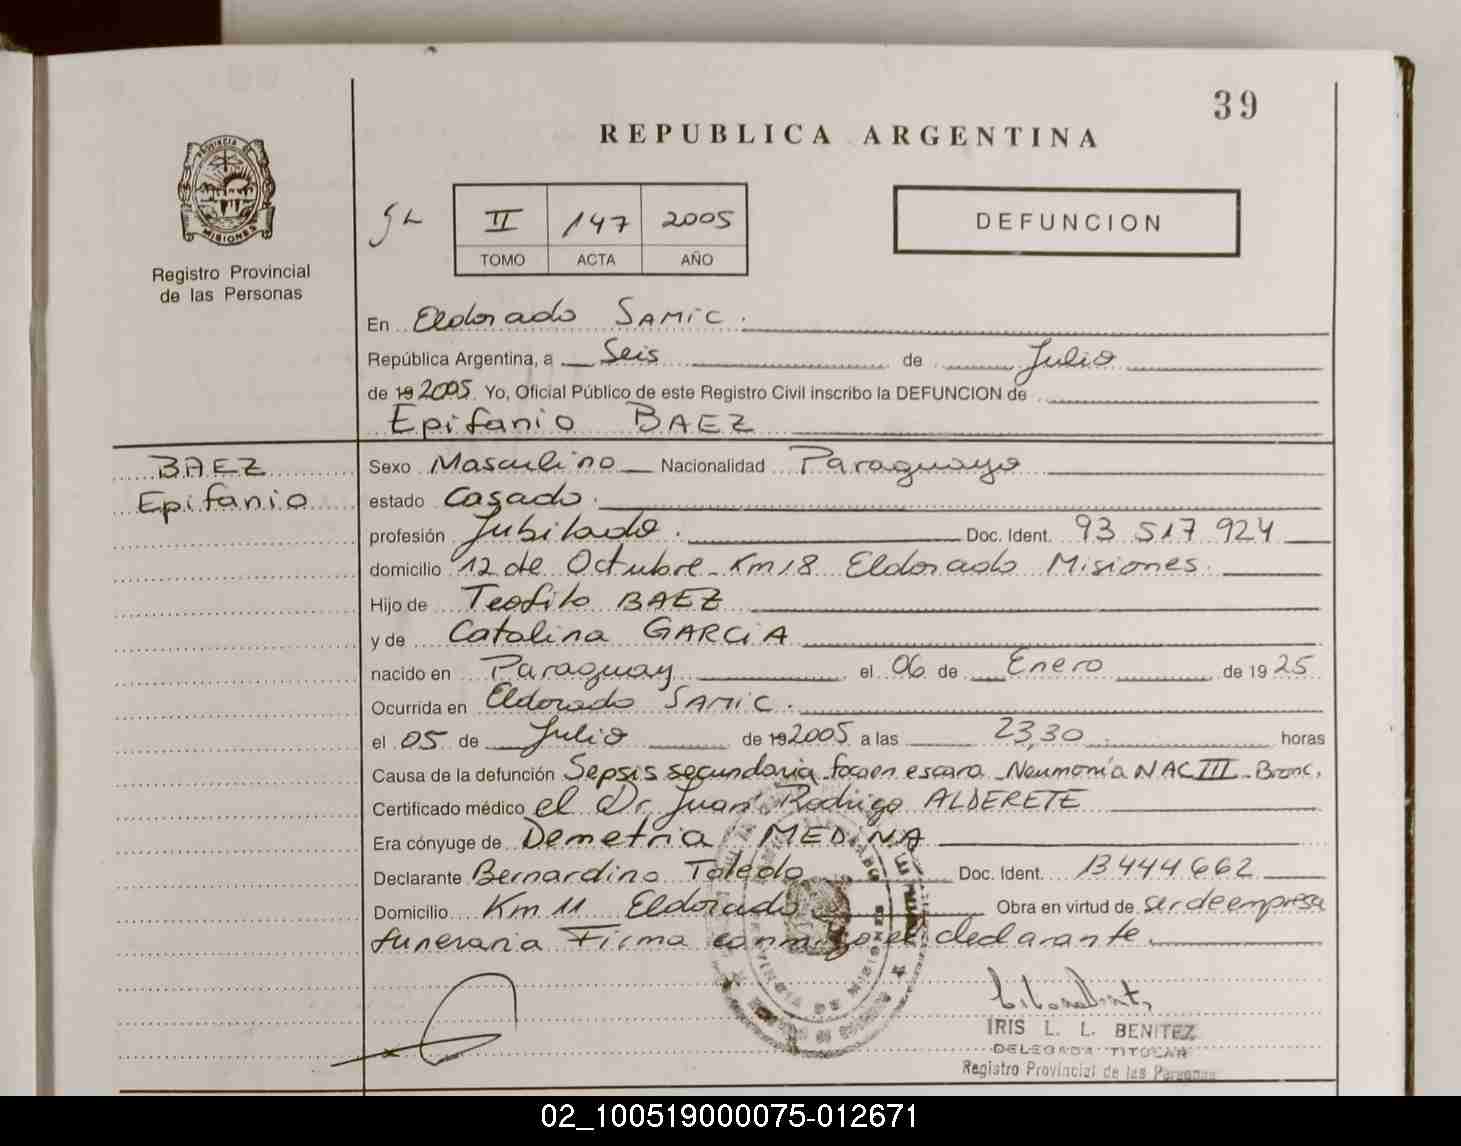 39
REPUBLICA ARGENTINA
PROVINCIA DE
MISIONES
Registro Provincial
de las Personas
II 147 2005
TOMO ACTA AÑO
DEFUNCION
En Eldorado SAMIC.
República Argentina, a Seis de Julio
de 19 2005. Yo, Oficial Público de este Registro Civil inscribo la DEFUNCION de
Epifanio BAEZ
BAEZ
Epifanio
Sexo Masculino Nacionalidad Paraguayo
estado Casado.
profesión Jubilado. Doc. Ident. 93 517 924
domicilio 12 de Octubre - Km 18 Eldorado Misiones.
Hijo de Teofilo BAEZ
y de Catalina GARCIA
nacido en Paraguay el 06 de Enero de 19 25
Ocurrida en Eldorado SAMIC.
el 05 de Julio de 19 2005 a las 23,30 horas
Causa de la defunción Sepsis secundaria foco en escara - Neumonía NAC III - Bronc.
Certificado médico el Dr. Juan Rodrigo ALDERETE
Era cónyuge de Demetria MEDINA
Declarante Bernardino Toledo Doc. Ident. 13 444 662
Domicilio Km 11 Eldorado Obra en virtud de ser de empresa
funeraria Firma conmigo el declarante.
PROVINCIA DE MISIONES
IRIS L. L. BENITEZ
DELEGADA TITULAR
Registro Provincial de las Personas
02_100519000075-012671